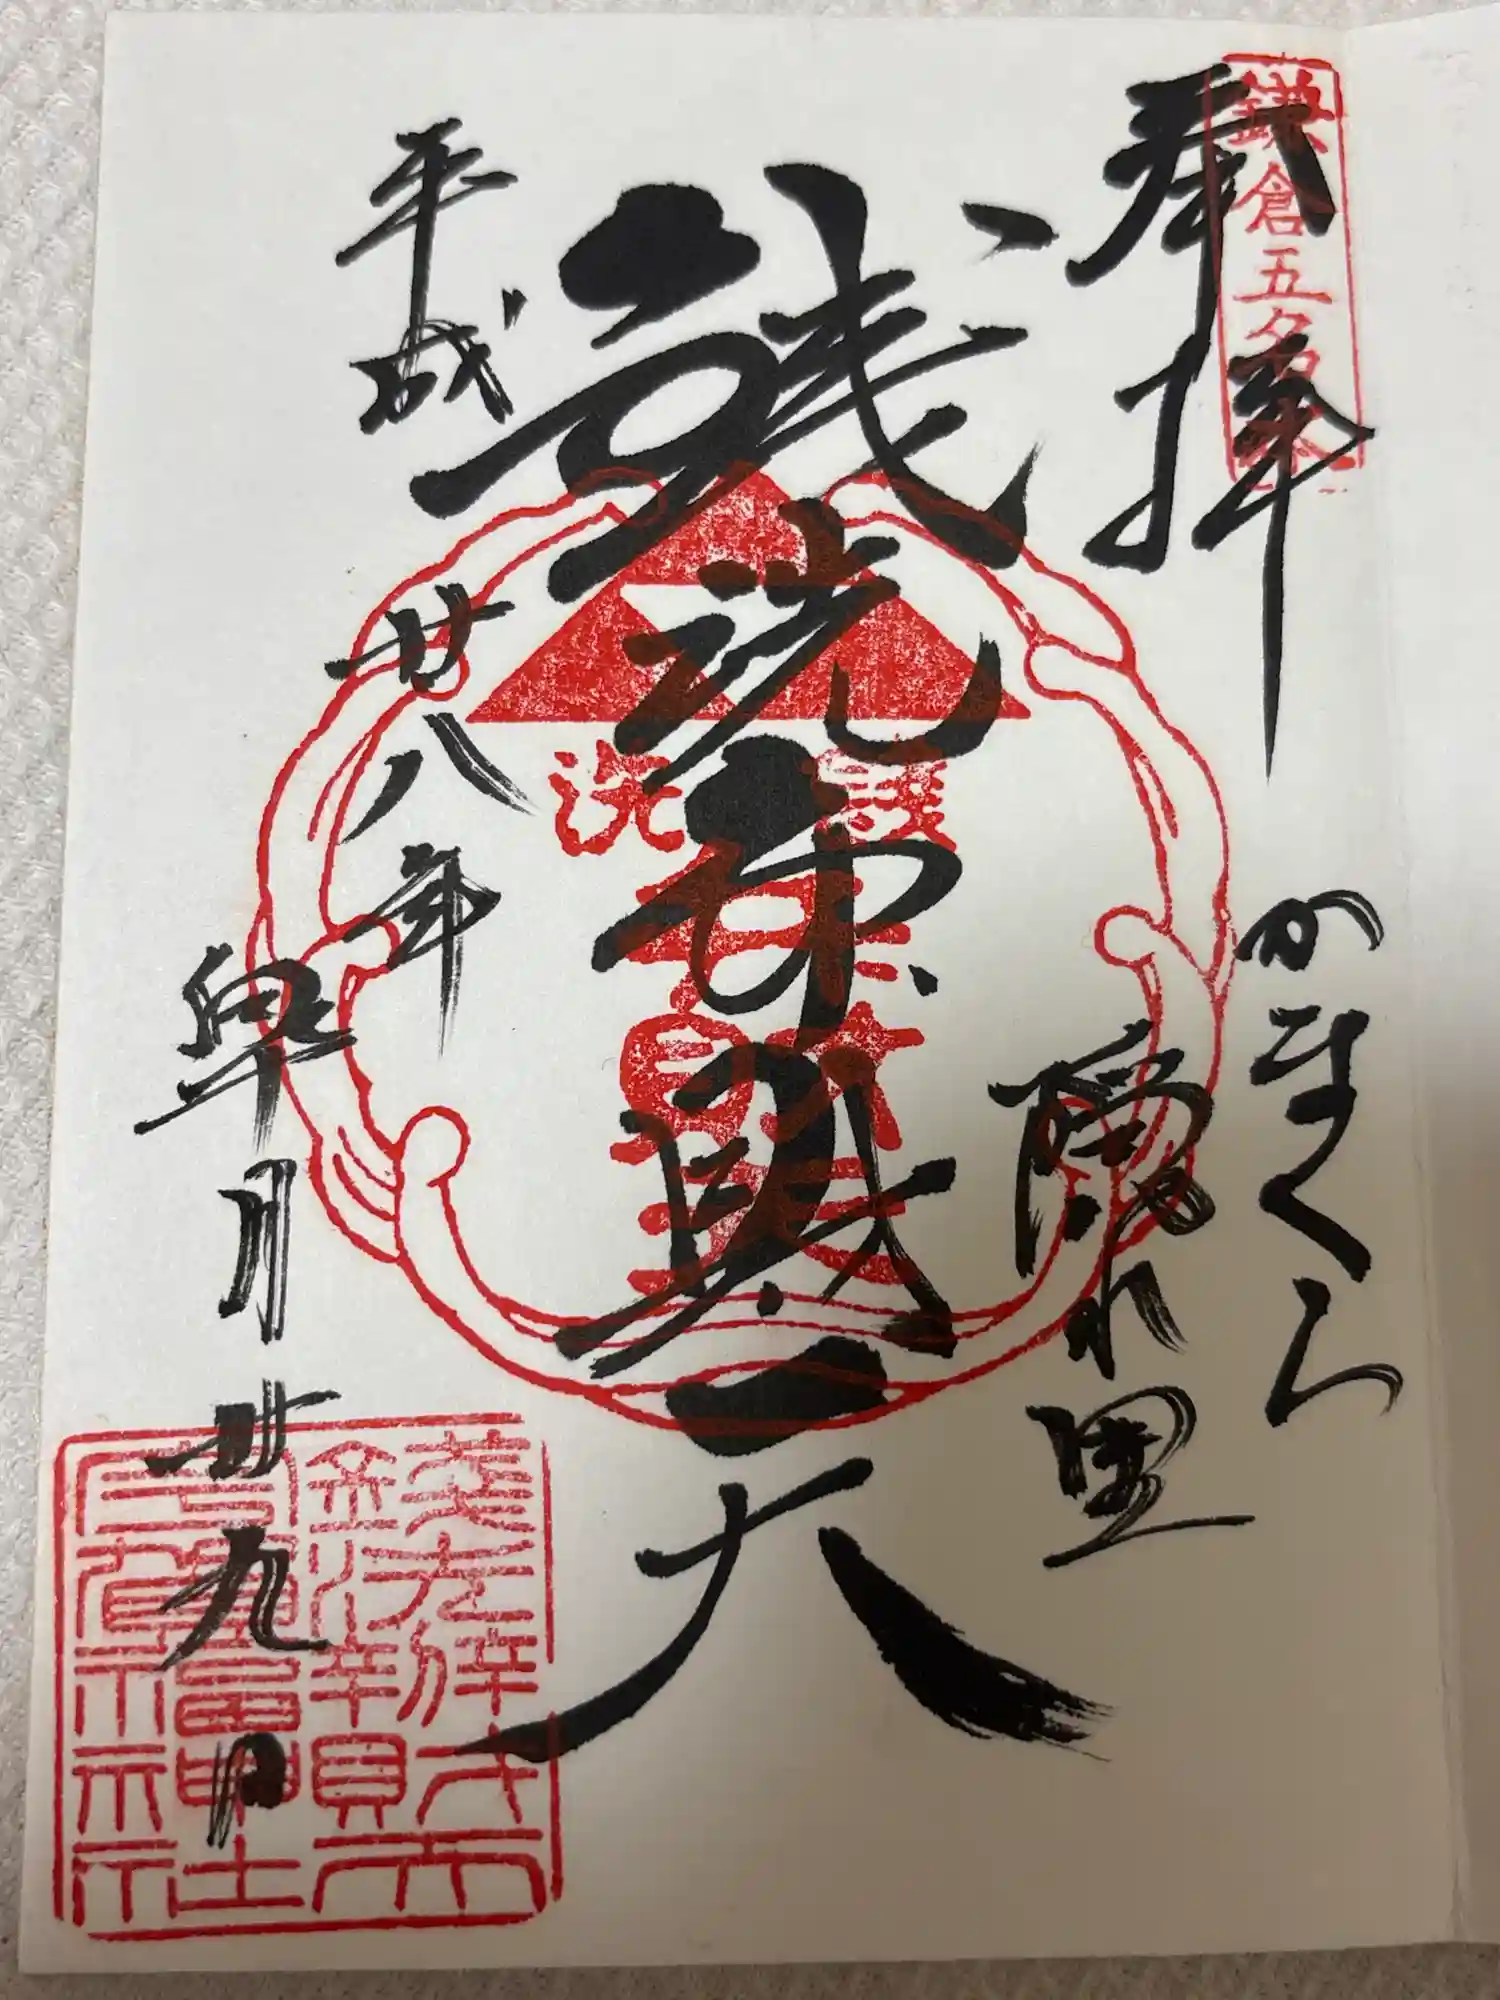 鎌倉五名水
奉拝
かまくら
隠れ里
銭洗弁財天
平成廿八年
皐月廿九日
錢洗辨財天
宇賀福神社